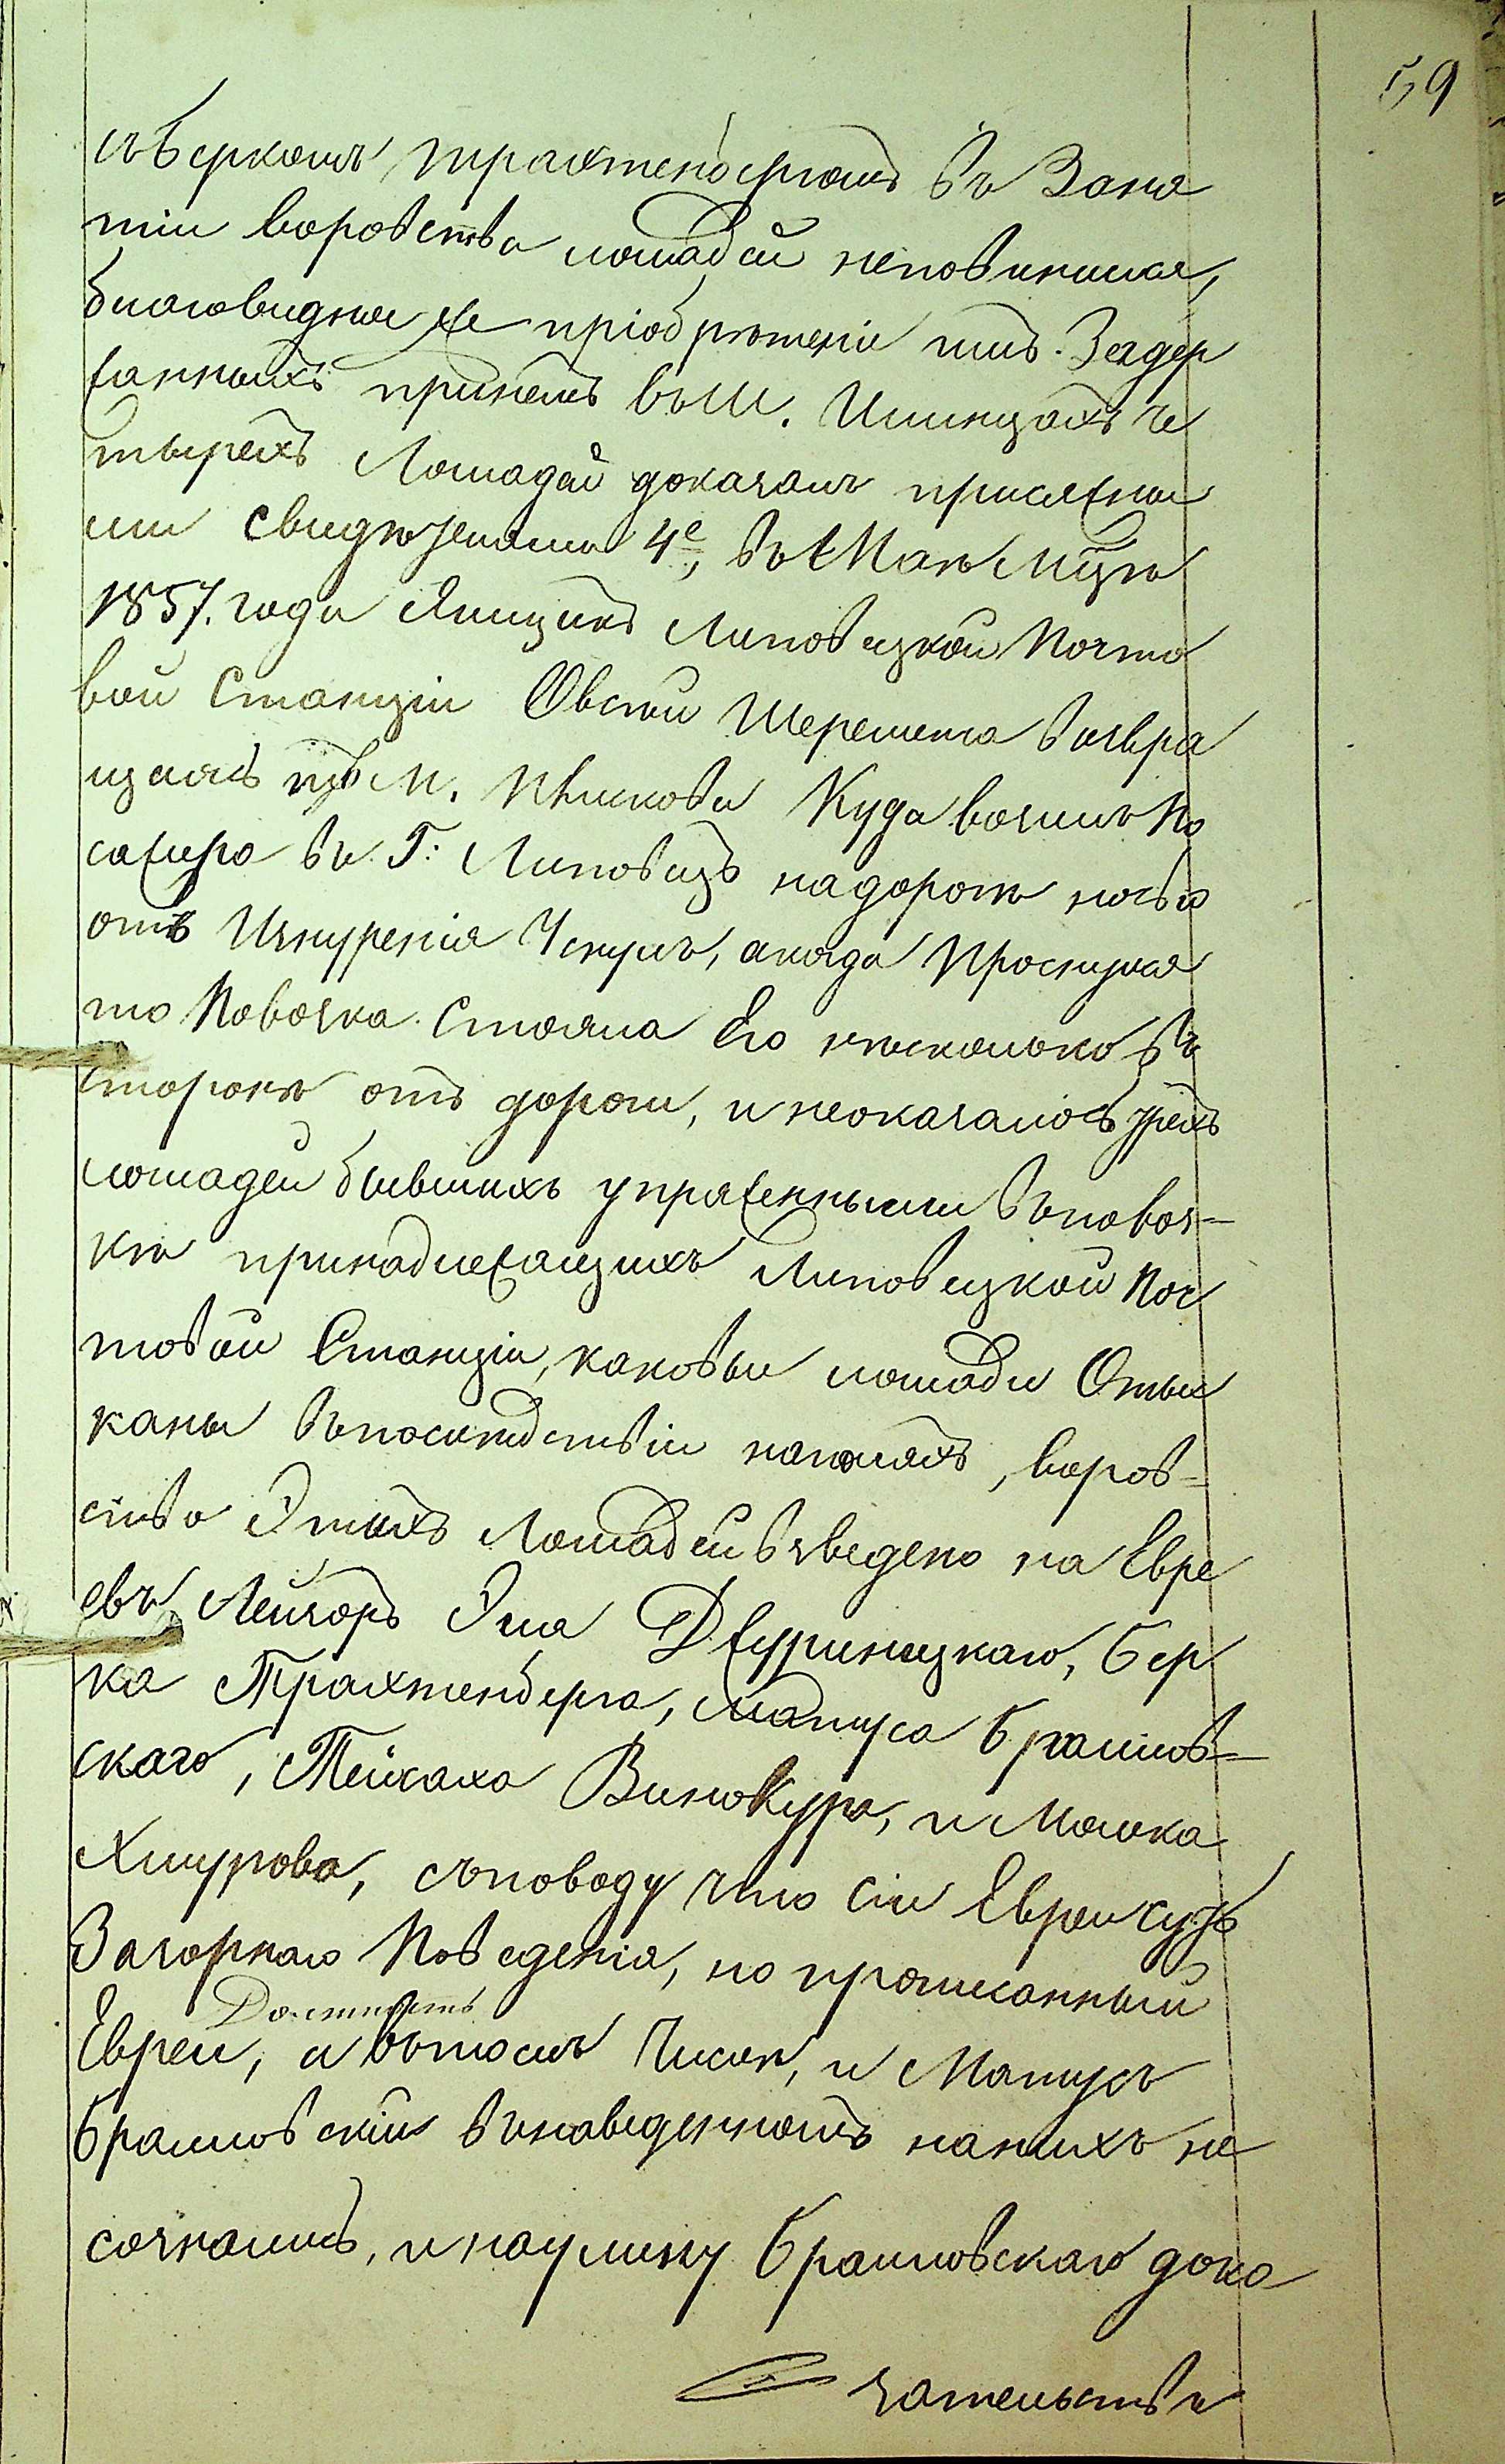 59
съ Беркомъ Трахтенбергомъ въ Заня
тіи воровства лошадей неповинился,
благовидное же пріобрѣтеніе имъ Задер
жанныхъ при немъ въ М. Илинцахъ че
тырехъ Лошадей доказалъ присяжны
ми свидѣтелями 4е, въ Маѣ Мцѣ
1857. года Ямщикъ Липовецкой Почто
вой Станціи Овсѣй Шеремета возвра
щаясь изъ М. Пѣшкова Куда возилъ Па
сажира въ Г: Липовецъ на дорогѣ ночью
отъ Изнуренія Уснулъ, а когда Проснулся
то Повозка стояла Его нѣсколько въ
сторонѣ отъ дороги, и неоказалось трехъ
лошадей бывшихъ упряженными въ повоз-
кѣ принадлежащихъ Липовецкой Поч
товой Станціи, каковые лошади Отыс
каны въ послѣдствіи на поляхъ, воров-
ство Этихъ Лошадей взведено на Евре
евъ Лейзоръ Эля Джуринецкаго, Бер
ка Трахтенберга, Матуса Браилов-
скаго, Тейхаха Винокура, и Мошка
Хмурова, съ поводу что сіи Евреи суть
Зазорнаго Поведенія, но прописанный
Евреи, а въ томъ Числѣ, и Матусъ
Браиловскій въ наведенномъ на нихъ не
сознались, и на улику Браиловскаго дока
зательствъ